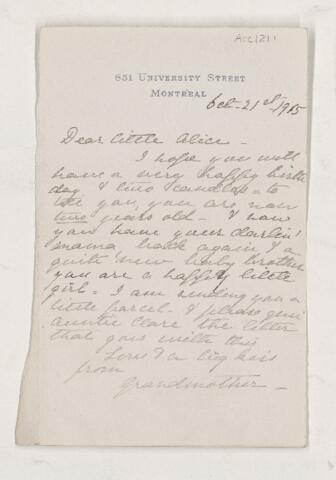 Acc1211
651 University Street
Montreal
Oct - 21st, 1915
Dear little Alice -
I hope you will
have a very happy birth
day, & two candles - to
you, you are now
two years old - & now
you have your darlin'
mama back again & a
quite new baby brother
you are a happy little
girl - I am sending you a
little parcel - & please give
auntie Clare the letter
that goes with this
Love & a big kiss
from
Grandmother -